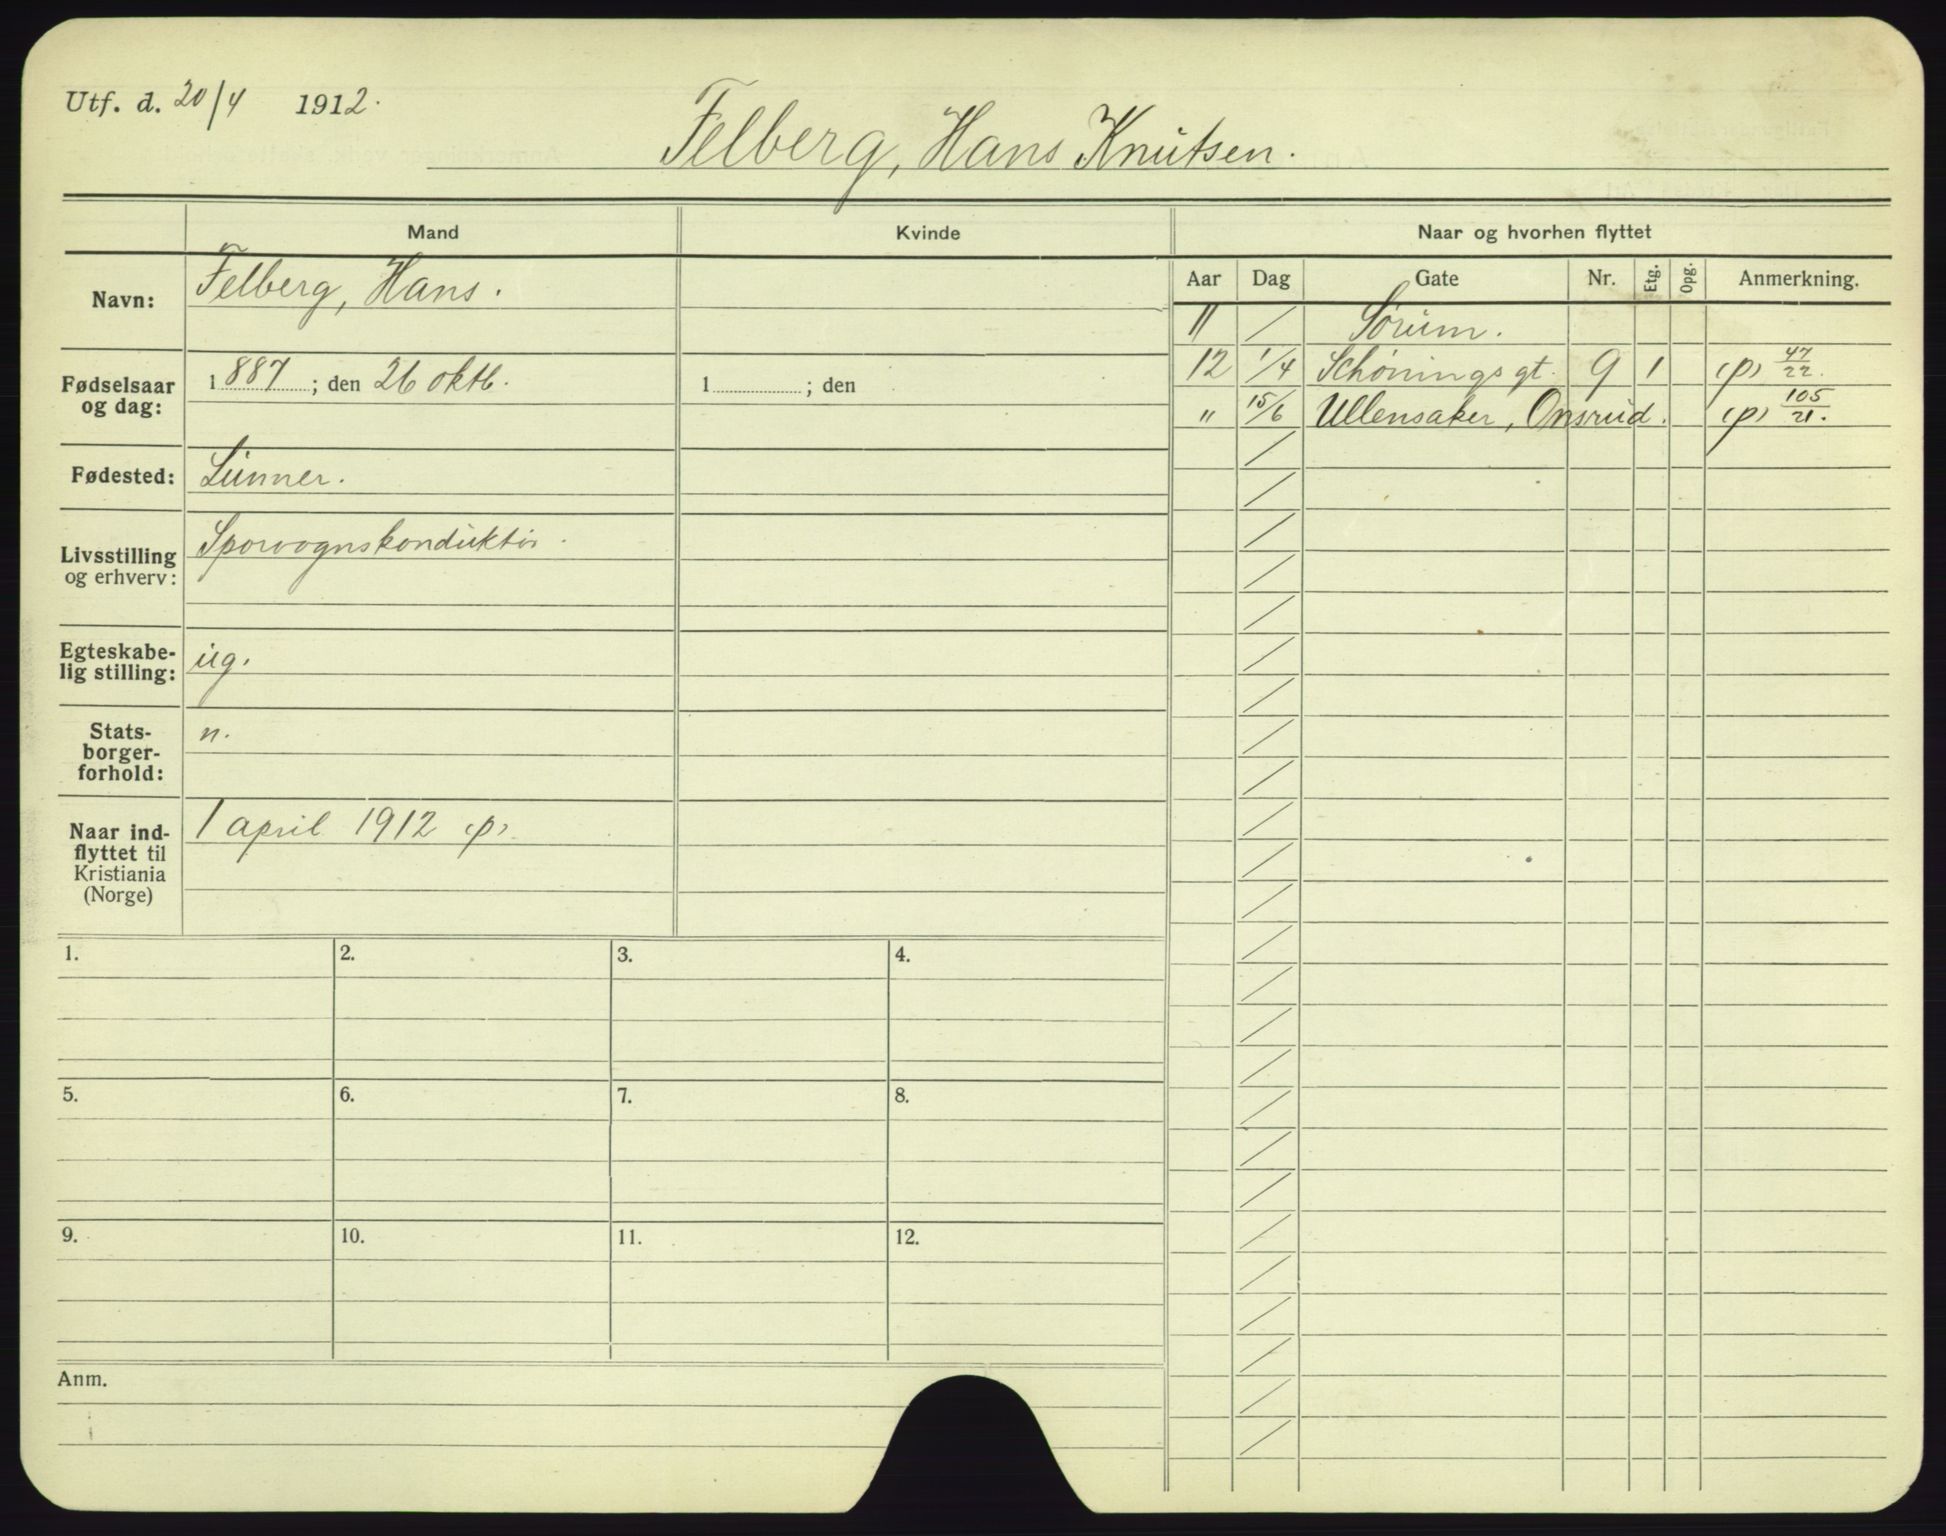 Utf. d. 20/4 1912.
Felberg, Hans Knutsen.
Mand
Kvinde
Naar og hvorhen flyttet
Aar Dag Gate Nr. Etg. Opg. Anmerkning.
11 / Sørum.
12 1/4 Schønings gt. 9 1 (p) 47/22.
" 15/6 Ullensaker, Onsrud. (p) 105/21.
Navn: Felberg, Hans.
Fødselsaar og dag: 1887; den 26 oktb. 1 ; den
Fødested: Lunner.
Livsstilling og erhverv: Sporvognskonduktør.
Egteskabe-
lig stilling: ug.
Stats-
borger-
forhold: n.
Naar ind-
flyttet til
Kristiania
(Norge) 1 april 1912 (p)
1. 2. 3. 4.
5. 6. 7. 8.
9. 10. 11. 12.
Anm.